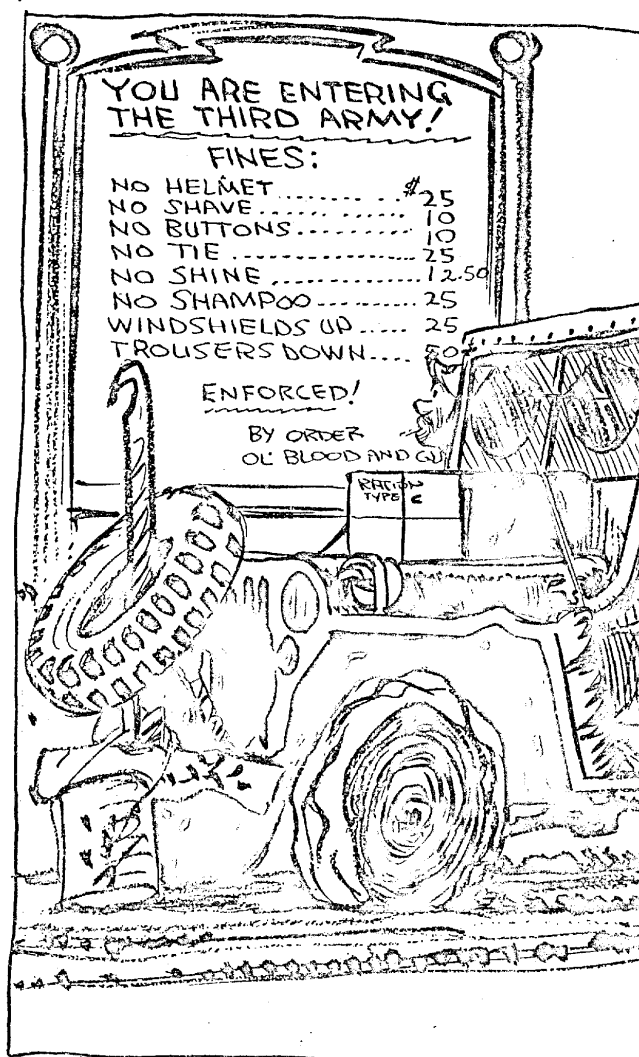 YOU ARE ENTERING
THE THIRD ARMY!
FINES:
NO HELMET.......... $25
NO SHAVE............ 10
NO BUTTONS......... 10
NO TIE................ 25
NO SHINE............. 12.50
NO SHAMPOO........ 25
WINDSHIELDS UP..... 25
TROUSERS DOWN.... 50
ENFORCED!
BY ORDER
OL' BLOOD AND GU
RATION
TYPE C